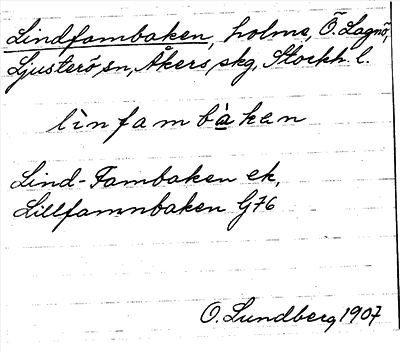 Lindfambaken, holme, Ö. Lagnö,
Ljusterö sn, Åkers skg, Stockh. l.
lìnfambàken
Lind-Fambaken ek,
Lillfamnbaken G76
O. Lundberg 1907